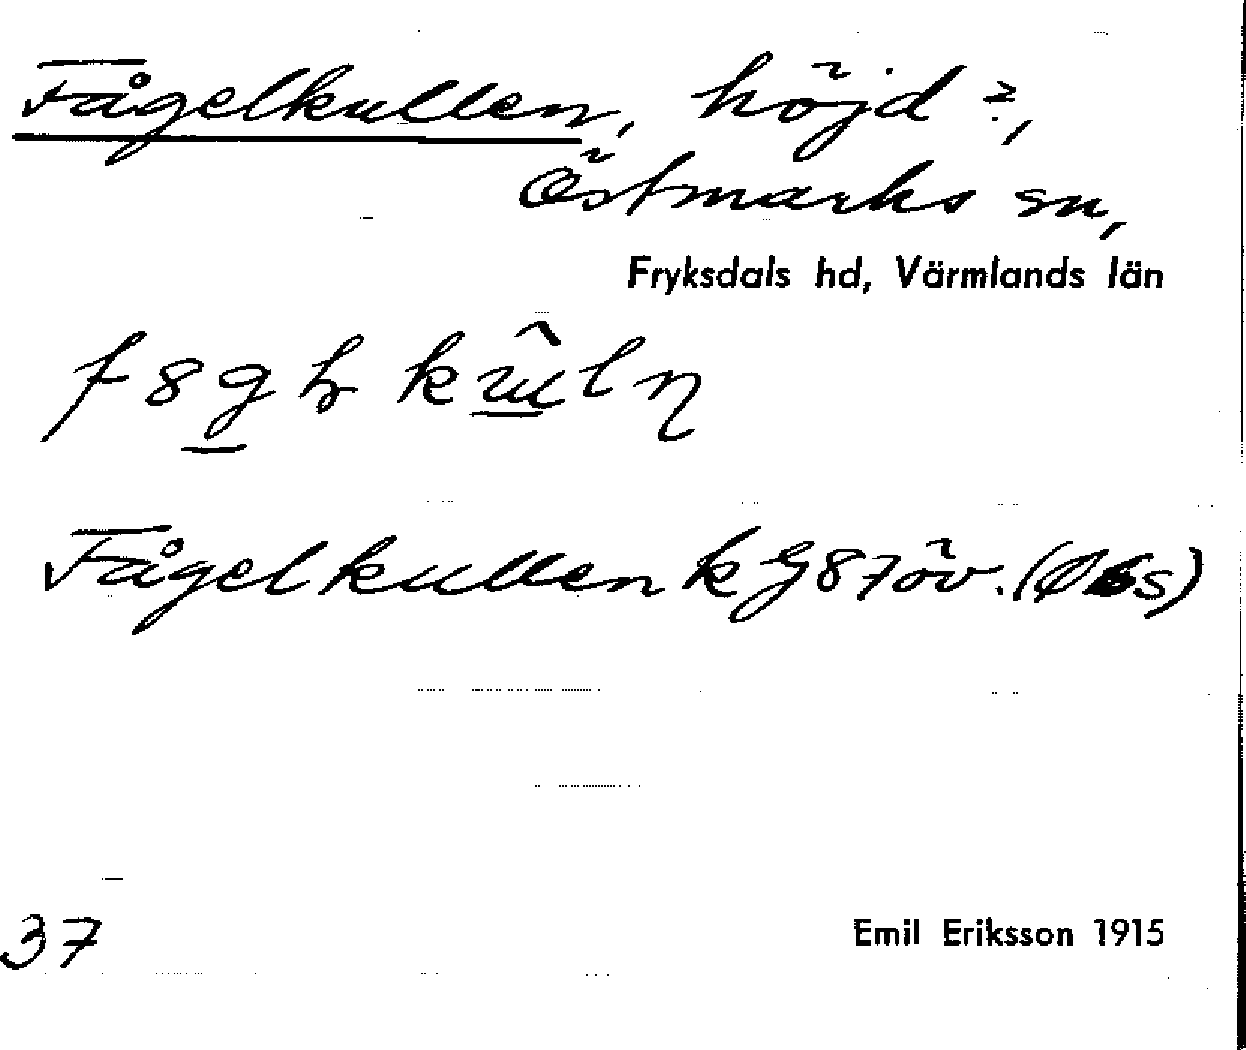 Fågelkullen, höjd?,
Östmarks sn,
Fryksdals hd, Värmlands län
Fågelkullen k G 87 öv.
37
Emil Eriksson 1915